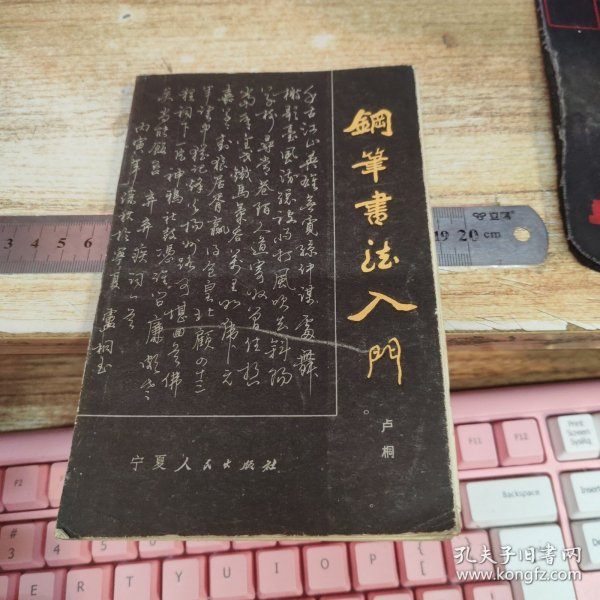 鋼筆書法入門
卢桐
千古江山英雄無覓孫仲謀處舞
榭歌臺風流總被雨打風吹去斜陽
草樹尋常巷陌人道寄奴曾住想
當年金戈鐵馬氣吞万里如虎元
嘉草草封狼居胥贏得仓皇北顧四十三
年望中猶记烽火揚州路可堪回首佛
狸祠下一片神鴉社鼓憑誰問廉頗老
矣尚能飯否 辛弃疾词一首
丙寅年秋於寧夏 盧桐书
宁夏人民出版社
3
4
5
6
19 20 cm
F1
F2
F11
F12
Print Screen SysRq
Backspace
Insert
E R T Y U I O P
孔夫子旧书网
www.kongfz.com